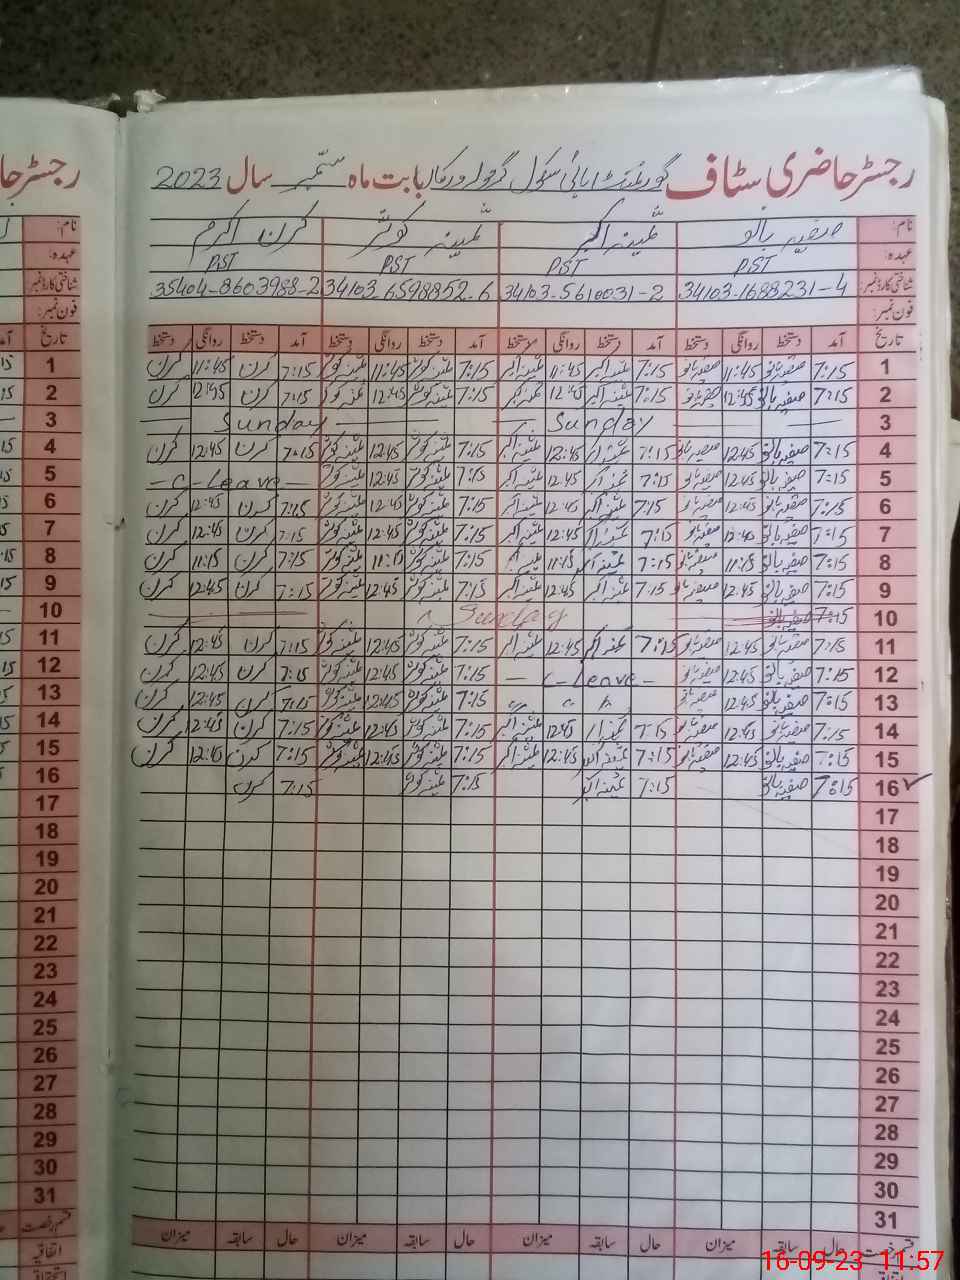 رجسٹر حاضری سٹاف گورنمنٹ ہائی سکول گرلز ورکاں بابت ماہ ستمبر سال 2023
نام: صفیہ بانو ثمینہ اکبر ثمینہ کوثر کرن اکرم
عہدہ: PST PST PST PST
شناختی کارڈ نمبر 34103-1688231-4 34103-5610031-2 34103-6598852-6 35404-8603988-2
فون نمبر:
تاریخ آمد دستخط روانگی دستخط آمد دستخط روانگی دستخط آمد دستخط روانگی دستخط آمد دستخط روانگی دستخط
1 7:15 صفیہ بانو 11:45 صفیہ بانو 7:15 ثمینہ اکبر 11:45 ثمینہ اکبر 7:15 ثمینہ کوثر 11:45 ثمینہ کوثر 7:15 کرن 11:45 کرن
2 7:15 صفیہ بانو 12:45 صفیہ بانو 7:15 ثمینہ اکبر 12:45 ثمینہ اکبر 7:15 ثمینہ کوثر 12:45 ثمینہ کوثر 7:15 کرن 12:45 کرن
3 — Sunday — — Sunday —
4 7:15 صفیہ بانو 12:45 صفیہ بانو 7:15 ثمینہ اکبر 12:45 ثمینہ اکبر 7:15 ثمینہ کوثر 12:45 ثمینہ کوثر 7:15 کرن 12:45 کرن
5 7:15 صفیہ بانو 12:45 صفیہ بانو 7:15 ثمینہ اکبر 12:45 ثمینہ اکبر 7:15 ثمینہ کوثر 12:45 ثمینہ کوثر — C-Leave —
6 7:15 صفیہ بانو 12:45 صفیہ بانو 7:15 ثمینہ اکبر 12:45 ثمینہ اکبر 7:15 ثمینہ کوثر 12:45 ثمینہ کوثر 7:15 کرن 12:45 کرن
7 7:15 صفیہ بانو 12:45 صفیہ بانو 7:15 ثمینہ اکبر 12:45 ثمینہ اکبر 7:15 ثمینہ کوثر 12:45 ثمینہ کوثر 7:15 کرن 12:45 کرن
8 7:15 صفیہ بانو 11:15 صفیہ بانو 7:15 ثمینہ اکبر 11:15 ثمینہ اکبر 7:15 ثمینہ کوثر 11:15 ثمینہ کوثر 7:15 کرن 11:15 کرن
9 7:15 صفیہ بانو 12:45 صفیہ بانو 7:15 ثمینہ اکبر 12:45 ثمینہ اکبر 7:15 ثمینہ کوثر 12:45 ثمینہ کوثر 7:15 کرن 12:45 کرن
10 7:15 صفیہ بانو Sunday
11 7:15 صفیہ بانو 12:45 صفیہ بانو 7:15 ثمینہ اکبر 12:45 ثمینہ اکبر 7:15 ثمینہ کوثر 12:45 ثمینہ کوثر 7:15 کرن 12:45 کرن
12 7:15 صفیہ بانو 12:45 صفیہ بانو — C-Leave — 7:15 ثمینہ کوثر 12:45 ثمینہ کوثر 7:15 کرن 12:45 کرن
13 7:15 صفیہ بانو 12:45 صفیہ بانو 7:15 ثمینہ کوثر 12:45 ثمینہ کوثر 7:15 کرن 12:45 کرن
14 7:15 صفیہ بانو 12:45 صفیہ بانو 7:15 ثمینہ اکبر 12:45 ثمینہ اکبر 7:15 ثمینہ کوثر 12:45 ثمینہ کوثر 7:15 کرن 12:45 کرن
15 7:15 صفیہ بانو 12:45 صفیہ بانو 7:15 ثمینہ اکبر 12:45 ثمینہ اکبر 7:15 ثمینہ کوثر 12:45 ثمینہ کوثر 7:15 کرن 12:45 کرن
16 7:15 صفیہ بانو 7:15 ثمینہ اکبر 7:15 ثمینہ کوثر 7:15 کرن
17
18
19
20
21
22
23
24
25
26
27
28
29
30
31
قسم رخصت حال سابقہ میزان حال سابقہ میزان حال سابقہ میزان حال سابقہ میزان
رجسٹر حا
نام:
عہدہ:
شناختی کارڈ نمبر
فون نمبر:
تاریخ آمد
1
2
3
4
5
6
7
8
9
10
11
12
13
14
15
16
17
18
19
20
21
22
23
24
25
26
27
28
29
30
31
قسم رخصت
اتفاقیہ
16-09-23 11:57